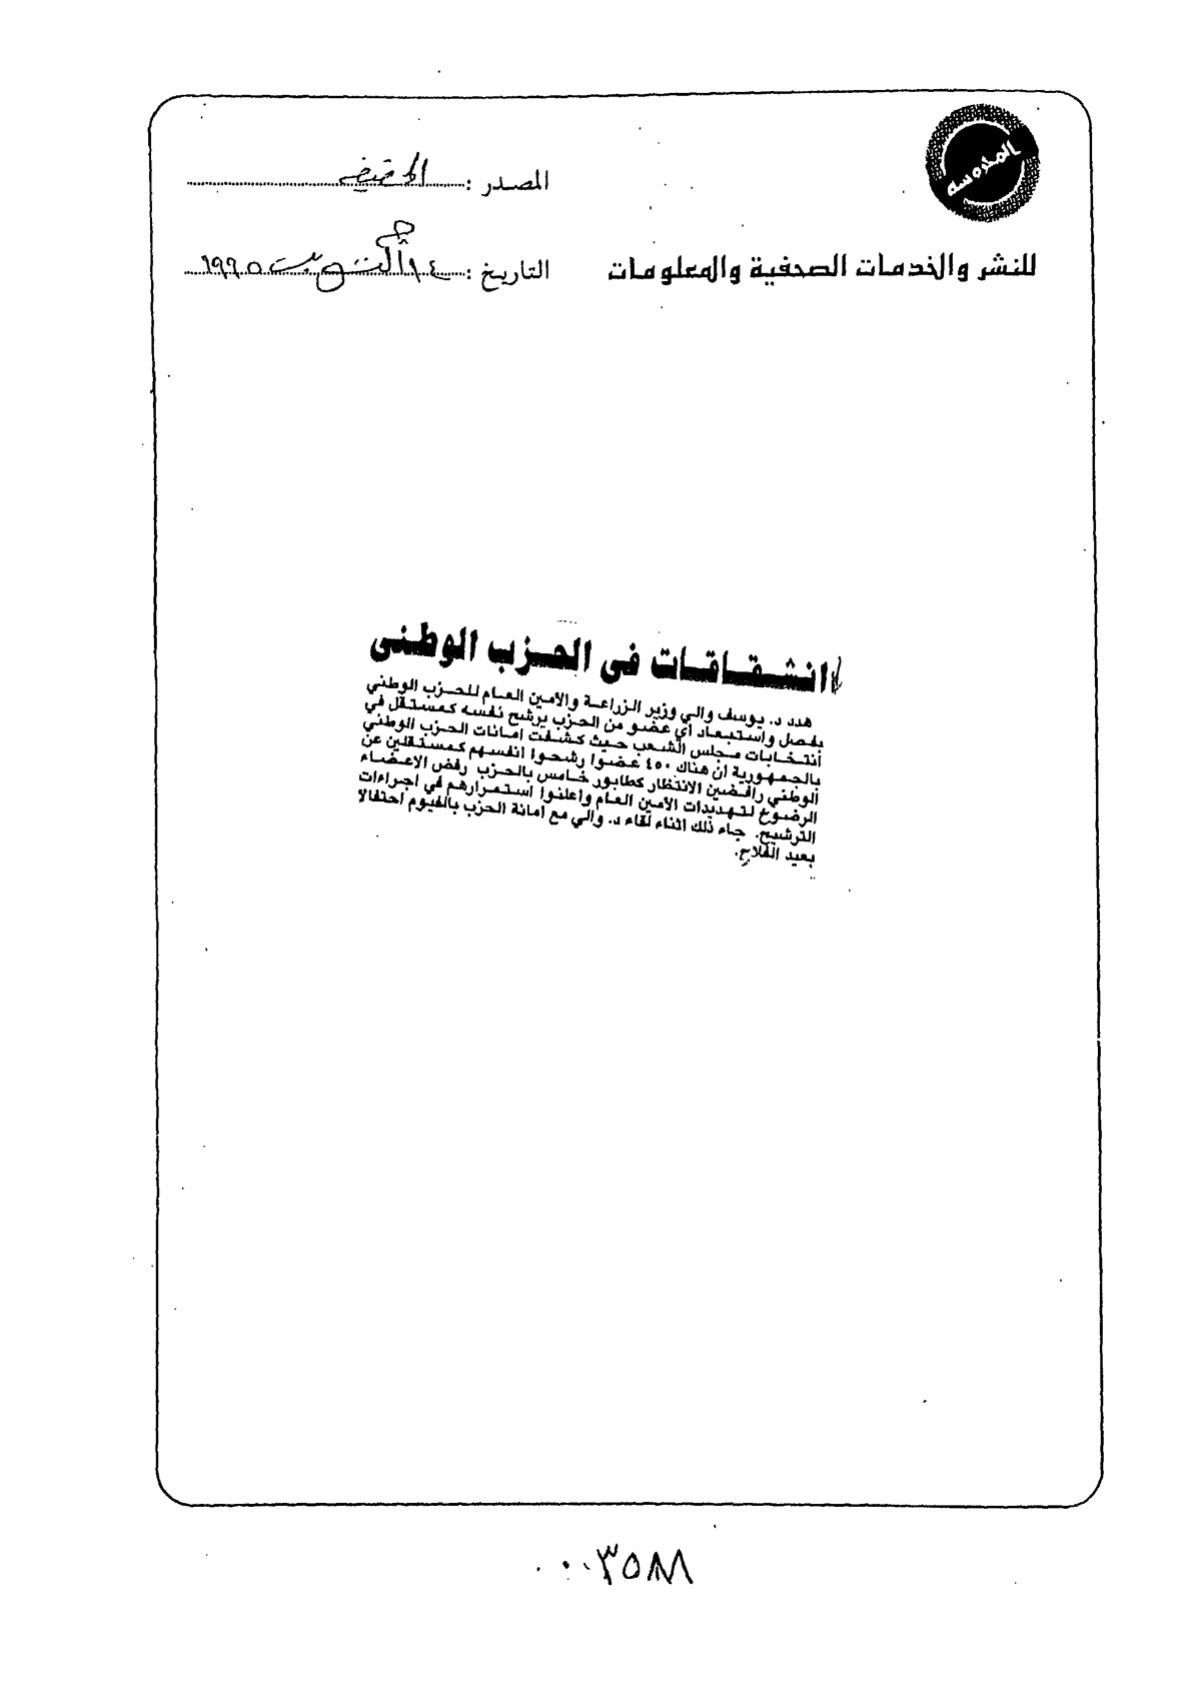 المحروسه
المصدر : الحقيقه
للنشر والخدمات الصحفية والمعلومات
التاريخ : ١٤ أكتوبر ١٩٩٥
انشقاقات فى الحزب الوطنى
هدد د. يوسف والي وزير الزراعة والامين العام للحزب الوطني
بفصل واستبعاد أي عضو من الحزب يرشح نفسه كمستقل في
انتخابات مجلس الشعب حيث كشفت امانات الحزب الوطني
بالجمهورية ان هناك ٤٥٠ عضوا رشحوا انفسهم كمستقلين عن
الوطني رافضين الانتظار كطابور خامس بالحزب رفض الاعضاء
الرضوع لتهديدات الامين العام واعلنوا استمرارهم في اجراءات
الترشيح. جاء ذلك اثناء لقاء د. والي مع امانة الحزب بالفيوم احتفالا
بعيد الفلاح.
٠٠٠٣٥٨٨